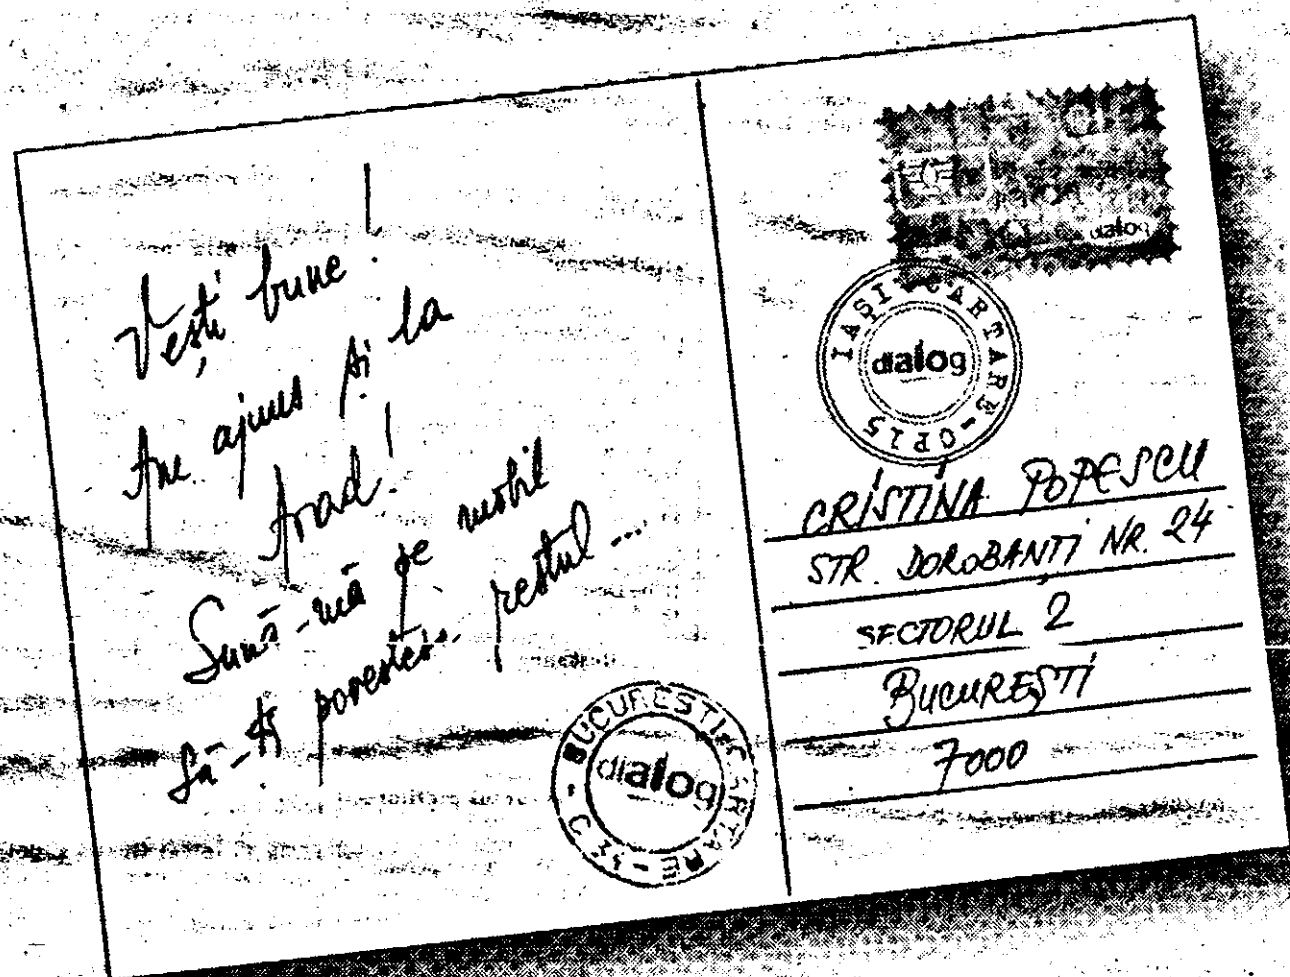 Vești bune!
Am ajuns și la
Arad!
Sună-mă pe mobil
să-ți povestesc restul...
dialog
IAȘI-CARTARE-OP15
dialog
CRISTINA POPESCU
STR. DOROBANȚI NR. 24
SECTORUL 2
BUCUREȘTI
7000
BUCUREȘTI-CARTARE
dialog